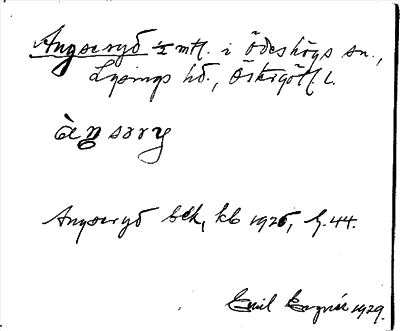 Angseryd ½ mtl. i Ödeshögs sn.,
Lysings hd., Östergötl. l.
Angseryd blk, kb 1925, s. 44.
Emil 1929.